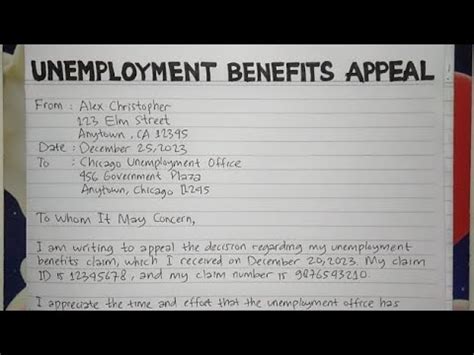 UNEMPLOYMENT BENEFITS APPEAL
From : Alex Christopher
123 Elm Street
Anytown, CA 12345
Date : December 25, 2023
To : Chicago Unemployment Office
456 Government Plaza
Anytown, Chicago 11245
To Whom It May Concern,
I am writing to appeal the decision regarding my unemployment
benefits claim, which I received on December 20, 2023. My claim
ID is 12345678, and my claim number is 9876543210.
I appreciate the time and effort that the unemployment office has